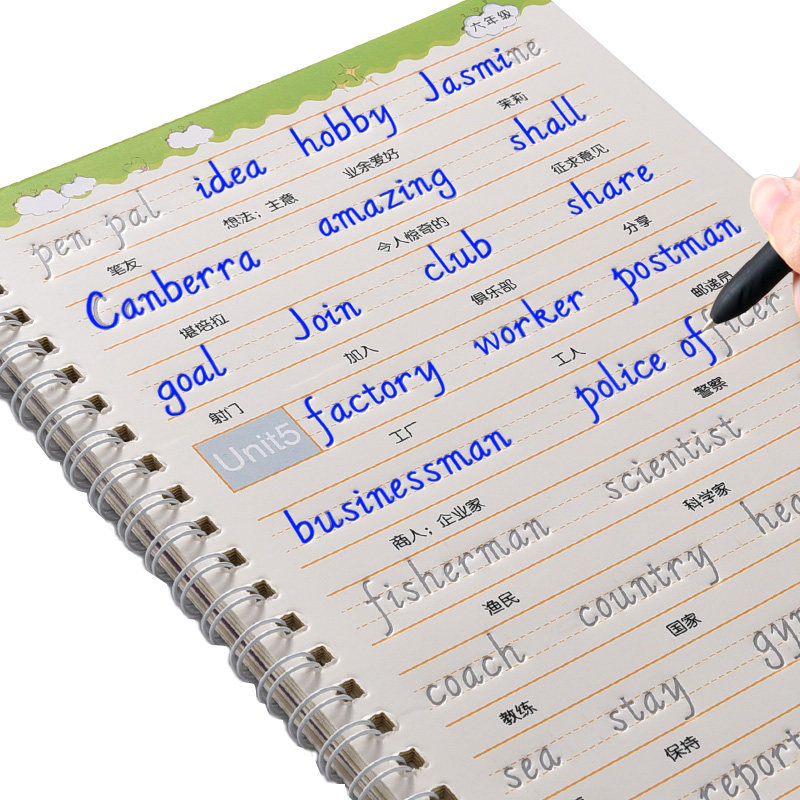 六年级
pen pal idea hobby Jasmine
笔友 想法；主意 业余爱好 茉莉
Canberra amazing shall
堪培拉 令人惊奇的 征求意见
goal Join club share
射门 加入 俱乐部 分享
Unit5 factory worker postman
工厂 工人 邮递员
businessman police officer
商人；企业家 警察
fisherman scientist
渔民 科学家
coach country
教练 国家
sea stay
保持
report